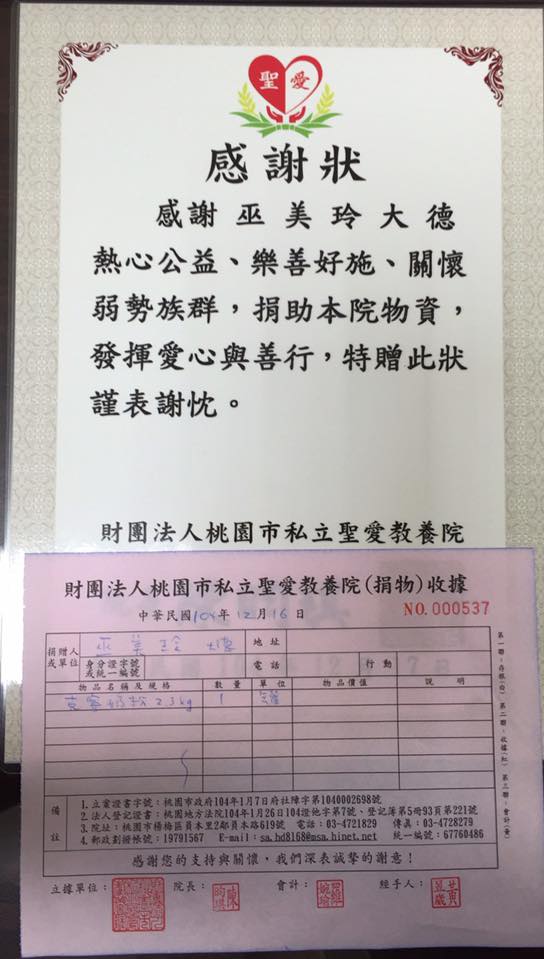 聖愛
感謝狀
感謝巫美玲大德
熱心公益、樂善好施、關懷
弱勢族群，捐助本院物資，
發揮愛心與善行，特贈此狀
謹表謝忱。
財團法人桃園市私立聖愛教養院
財團法人桃園市私立聖愛教養院(捐物)收據
中華民國104年12月16日
NO.000537
捐贈人或單位 巫美玲 大德 地址
身分證字號或統一編號 電話 行動
物品名稱及規格 數量 單位 物品價值 說明
奶粉2.3kg 1 罐
備註
1.立案證書字號：桃園市政府104年1月7日府社障字第1040002698號
2.法人登記證書：桃園地方法院104年1月26日104證他字第7號、登記簿第5冊93頁第221號
3.院址：桃園市楊梅區員本里2鄰員本路619號 電話：03-4721829 傳真：03-4728279
4.郵政劃撥帳號：19791567 E-mail：sa.hd8168@msa.hinet.net 統一編號：67760486
感謝您的支持與關懷，我們深表誠摯的謝意！
立據單位： 院長： 會計： 經手人：
第一聯：存根(白) 第二聯：收據(紅) 第三聯：會計(黃)